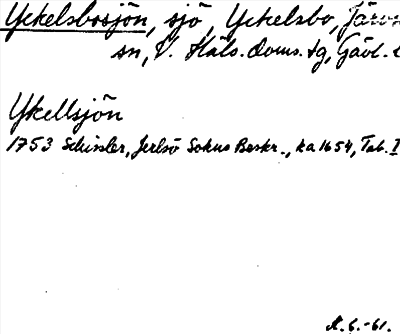 Yckelsbosjön, sjö, Yckelsbo, Järvsö
sn, V. Häls. doms. tg, Gävl.
Ykellsjön
1753 Schissler, Jerlsö Sokns Beskr., ka 1654, Tab. I
-61.